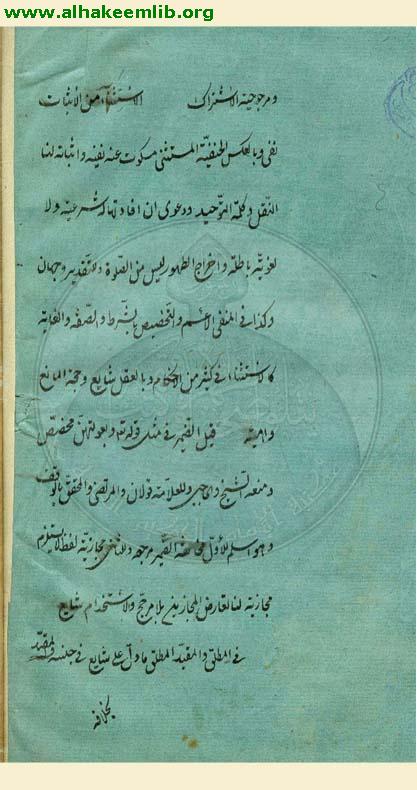 www.alhakeemlib.org
ومرجوحية الاشتراك الاستثناء من الاثبات
نفي وبالعكس الحنفية المستثنى مسكوت عنه نفيه واثباته لنا
النقل وكلمة التوحيد ودعوى ان افادتها له شرعية ولا
لغوية باطلة واخراج الطهور ليس من الصلوة وللتقدير وجهان
وكذا في المنفي الاعم والتخصيص بالشرط والصفة والغاية
كالاستثناء في كثير من الاحكام وبالعقل شايع وحجة المانع
واهية قيل الضمير في مثل قوله تعالى وبعولتهن مخصص
ومنعه الشيخ والحاجبي وللعلامة قولان والمرتضى والمحقق بالوقف
وهو اسلم للأول مخالفة الضمير مرجعه وللثاني مجازية لفظ لا يستلزم
مجازية لنا تعارض المجازين بلا مرجح والاستخدام شايع
في المطلق والمقيد المطلق ما دل على شايع في جنسه والمقيد
بخلافه